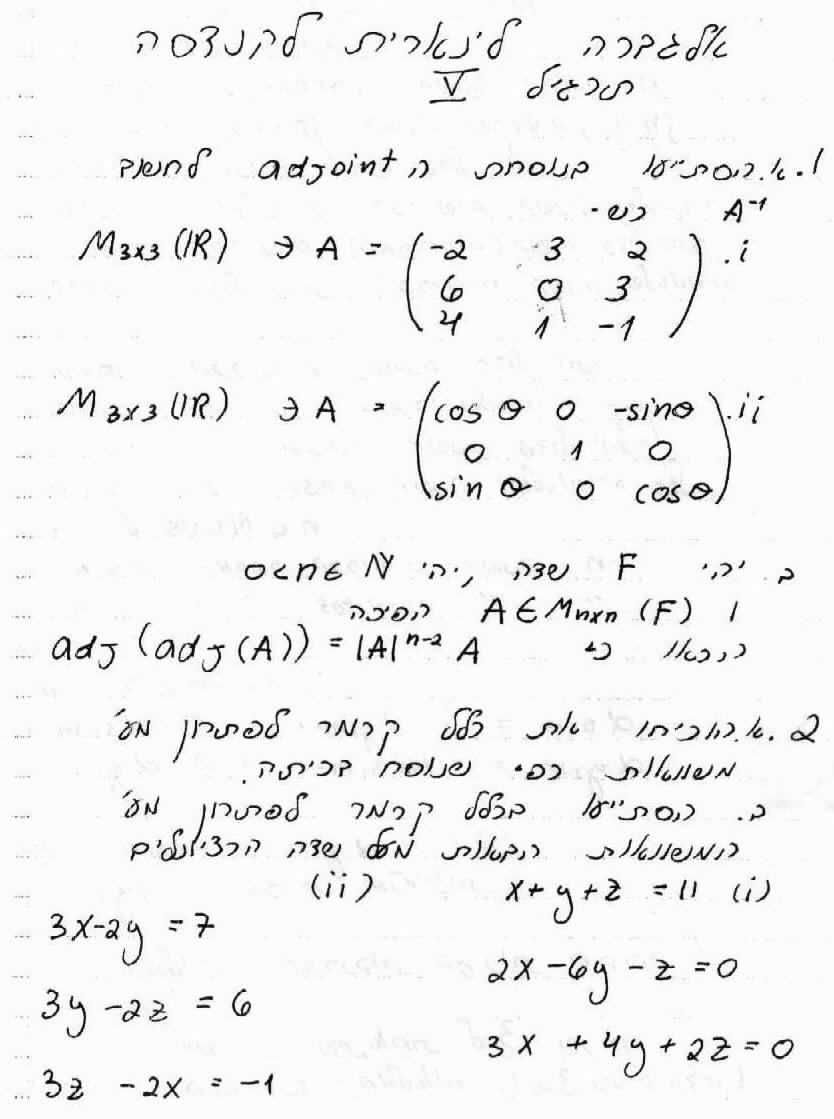 אלגברה לינארית להנדסה
תרגיל V
1. א. הסתייעו בנוסחת ה adjoint לחשוב
A⁻¹ כש-
i. M₃ₓ₃(ℝ) ∋ A = (-2 3 2
6 0 3
4 1 -1)
ii. M₃ₓ₃(ℝ) ∋ A = (cos θ 0 -sin θ
0 1 0
sin θ 0 cos θ)
ב. יהי F שדה, יהי
ו A ∈ Mₙₓₙ(F) הפיכה
הראו כי adj(adj(A)) = |A|ⁿ⁻² A
2. א. הוכיחו את כלל קרמר לפתרון מע'
משוואות כפי שנוסח בכיתה.
ב. הסתייעו בכלל קרמר לפתרון מע'
המשוואות הבאות מעל שדה הרציונלים
(i) x + y + z = 11
2x - 6y - z = 0
3x + 4y + 2z = 0
(ii)
3x - 2y = 7
3y - 2z = 6
3z - 2x = -1